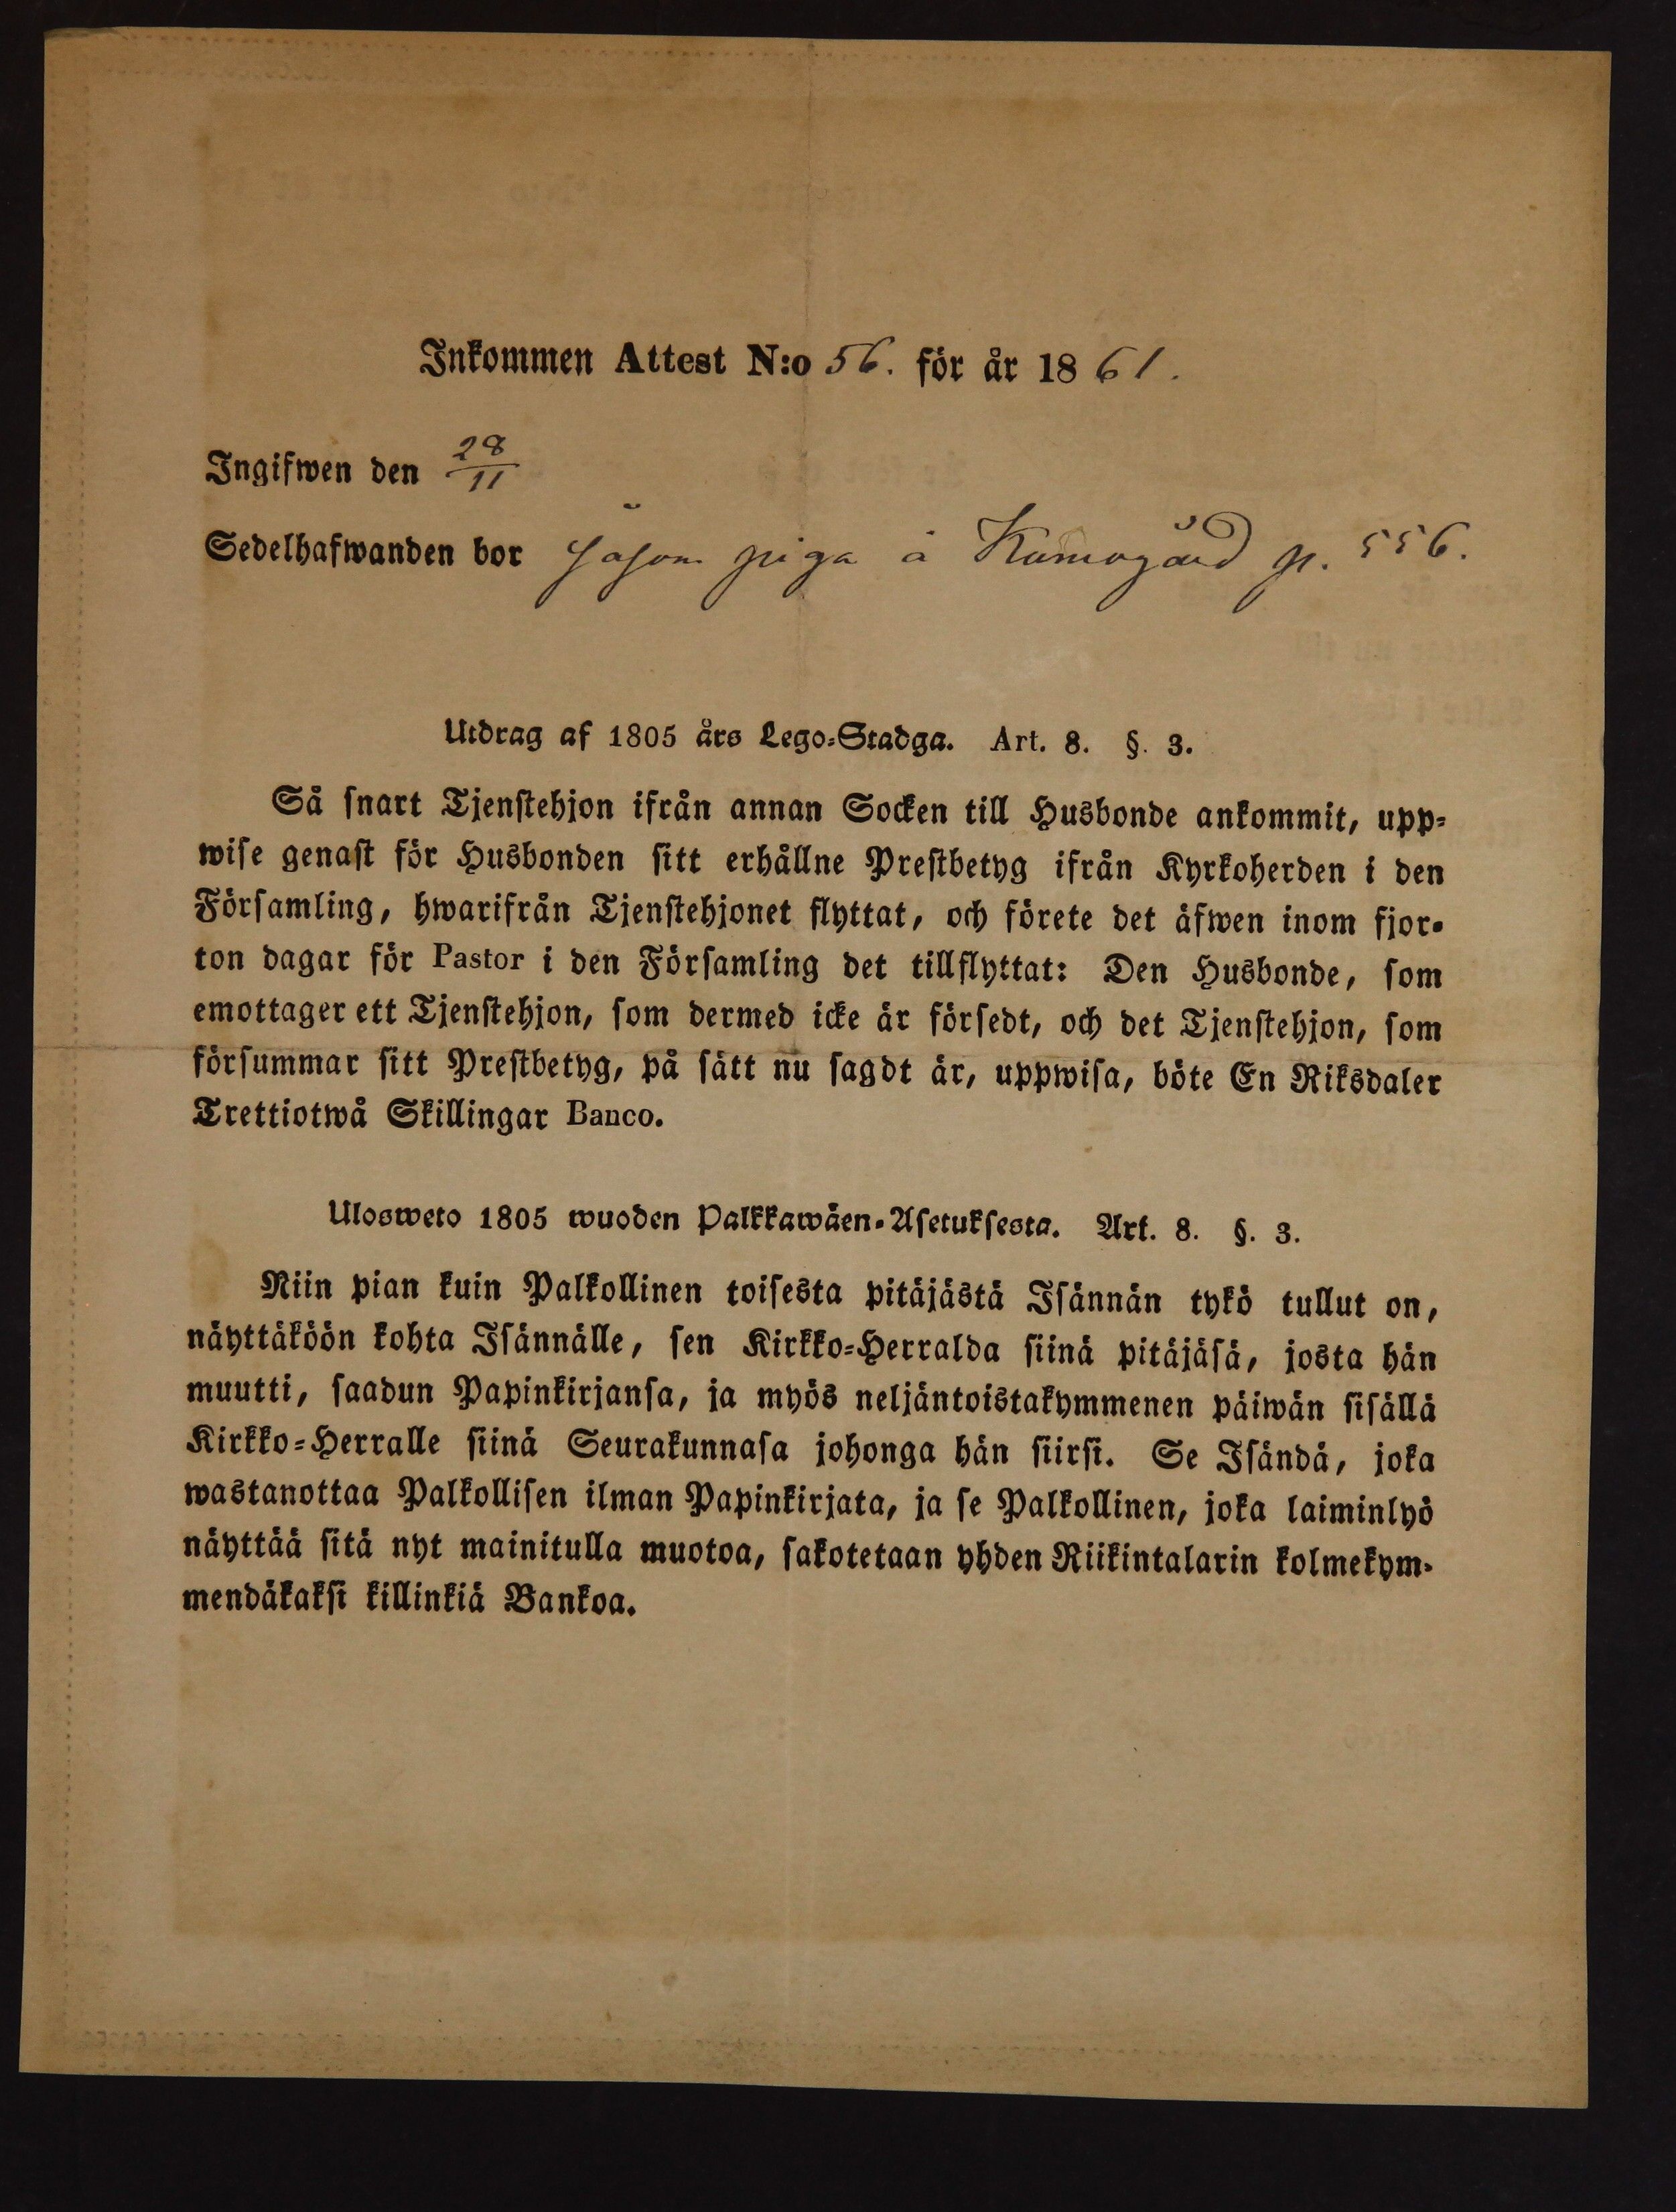 Inkommen Attest N:o 56. för år 1861.
Ingifwen den 28/11
Sedelhafwanden bor såsom piga å Kumogård p. 556.
Utdrag af 1805 års Lego-Stadga. Art. 8. §. 3.
Så snart Tjenstehjon ifrån annan Socken till Husbonde ankommit, upp-
wise genast för Husbonden sitt erhållne Prestbetyg ifrån Kyrkoherden i den
Församling, hwarifrån Tjenstehjonet flyttat, och förete det äfwen inom fjor-
ton dagar för Pastor i den Församling det tillflyttat: Den Husbonde, som
emottager ett Tjenstehjon, som dermed icke är försedt, och det Tjenstehjon, som
försummar sitt Prestbetyg, på sätt nu sagdt är, uppwisa, böte En Riksdaler
Trettiotwå Skillingar Banco.
Ulosweto 1805 wuoden Palkkawäen-Asetuksesta. Art. 8. §. 3.
Niin pian kuin Palkollinen toisesta pitäjästä Isännän tykö tullut on,
näyttäköön kohta Isännälle, sen Kirkko-Herralda siinä pitäjäsä, josta hän
muutti, saadun Papinkirjansa, ja myös neljäntoistakymmenen päiwän sisällä
Kirkko-Herralle siinä Seurakunnasa johonga hän siirsi. Se Isändä, joka
wastanottaa Palkollisen ilman Papinkirjata, ja se Palkollinen, joka laiminlyö
näyttää sitä nyt mainitulla muotoa, sakotetaan yhden Riikintalarin kolmekym-
mendäkaksi killinkiä Bankoa.